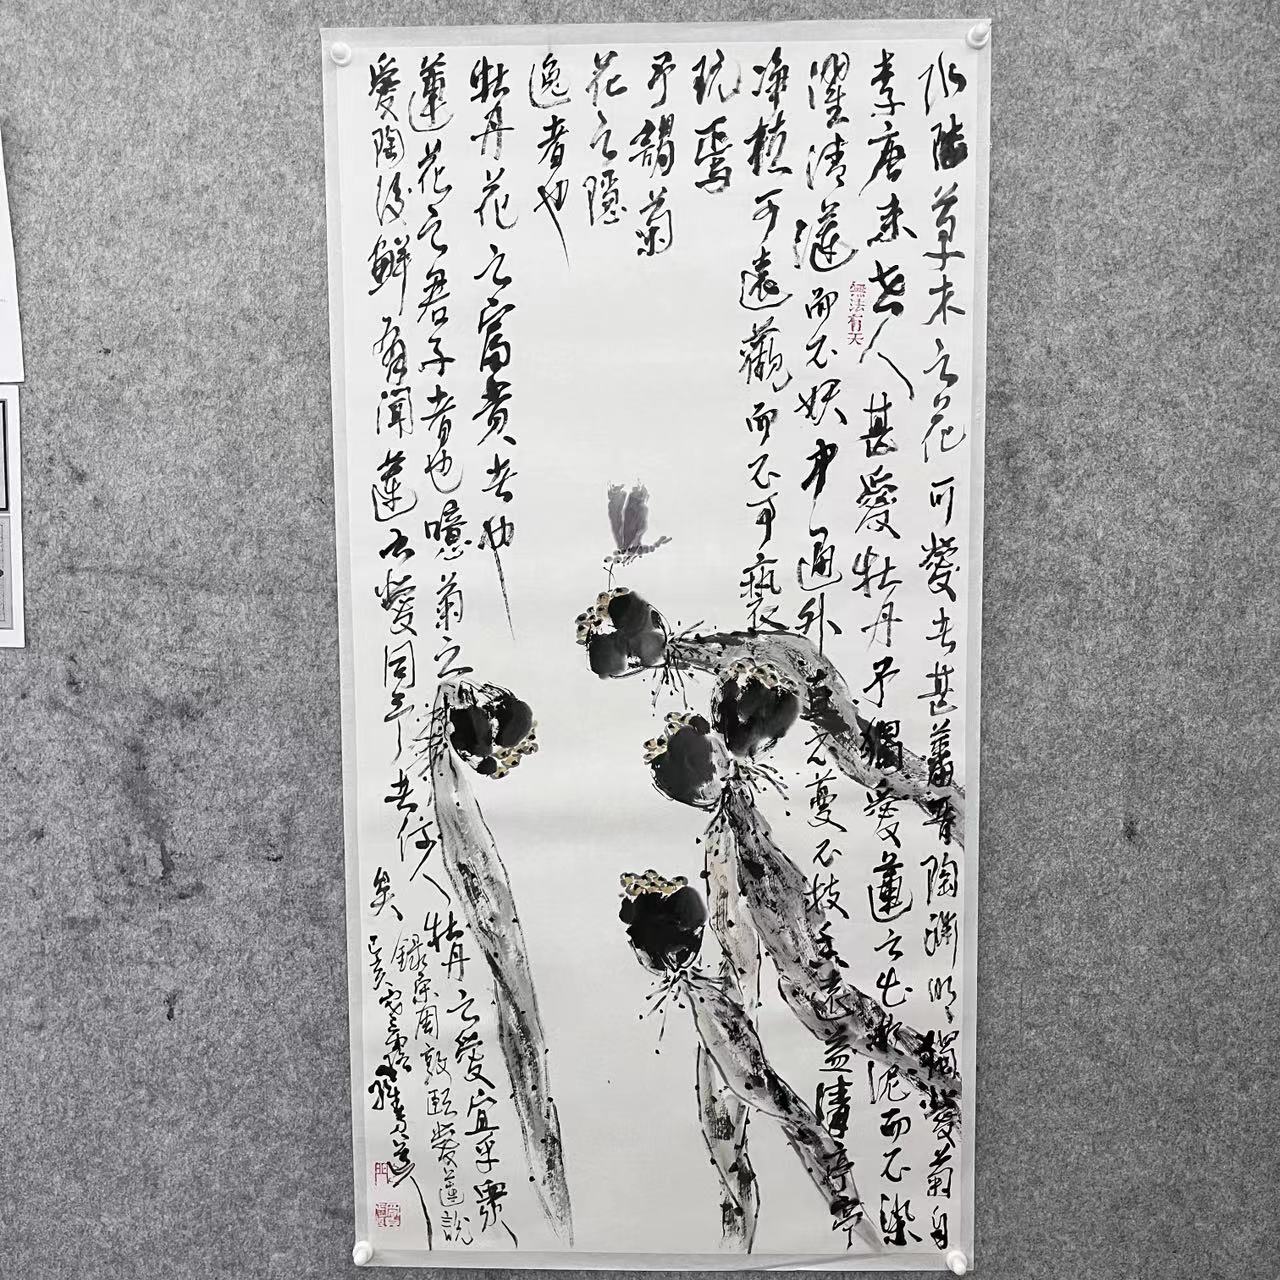 水陸草木之花可愛者甚蕃晋陶淵明獨愛菊自
李唐来世人甚愛牡丹予獨愛蓮之出淤泥而不染
濯清漣而不妖中通外直不蔓不枝香遠益清亭亭
净植可遠觀而不可褻
玩焉
予謂菊
花之隱
逸者也
牡丹花之富貴者也
蓮花之君子者也噫菊之
愛陶後鮮有聞蓮之愛同予者何人
牡丹之愛宜乎衆
矣
錄宋周敦頤愛蓮說
己亥寒露
無法有天